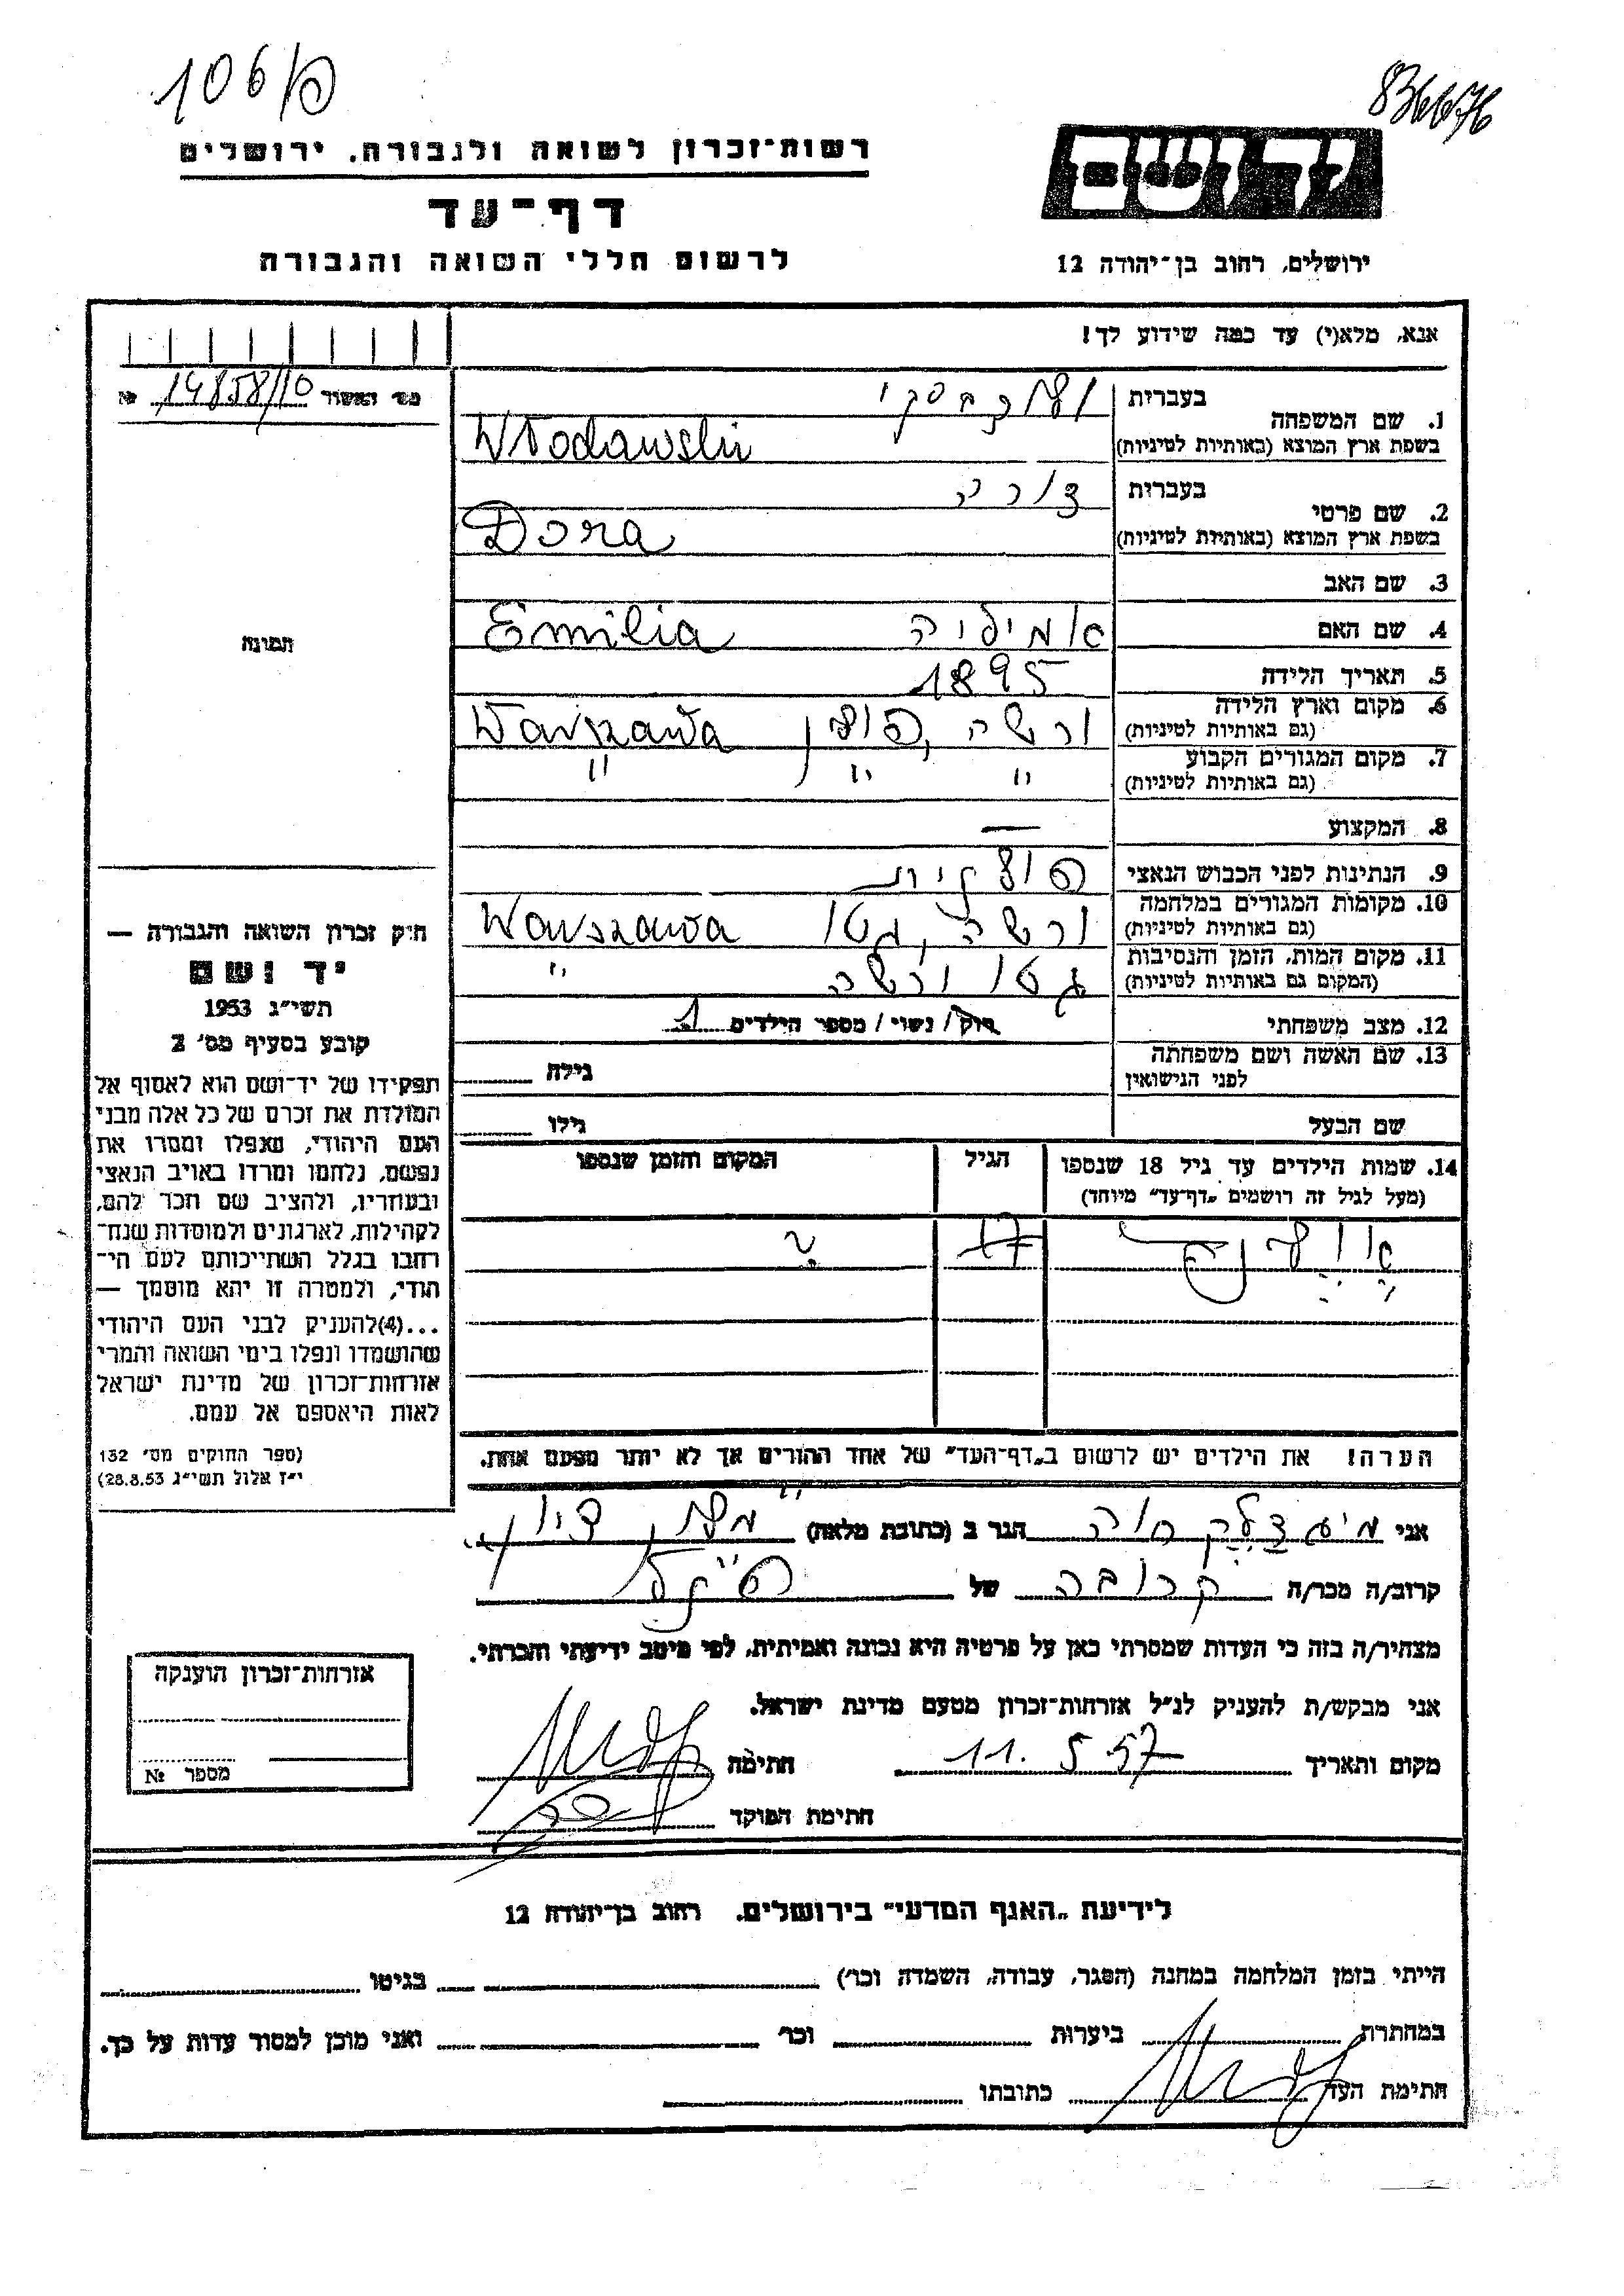 106/פ
836676
רשות-זכרון לשואה ולגבורה, ירושלים
יד ושם
דף-עד
לרשום חללי השואה והגבורה
ירושלים, רחוב בן-יהודה 12
אנא, מלא(י) עד כמה שידוע לך!
מס' האשור 14858/10 №
1. שם המשפחה
בעברית
בשפת ארץ המוצא (באותיות לטיניות)
Włodawski
2. שם פרטי
בעברית דורה
בשפת ארץ המוצא (באותיות לטיניות)
Dora
3. שם האב
4. שם האם אמיליה Emilia
5. תאריך הלידה 1895
6. מקום וארץ הלידה
(גם באותיות לטיניות)
ורשה, פולין Warszawa
7. מקום המגורים הקבוע
(גם באותיות לטיניות)
" " "
8. המקצוע —
9. הנתינות לפני הכבוש הנאצי פולנית
10. מקומות המגורים במלחמה
(גם באותיות לטיניות)
ורשה, גטו Warszawa
11. מקום המות, הזמן והנסיבות
(המקום גם באותיות לטיניות)
גטו ורשה "
12. מצב משפחתי רווק / נשוי / מספר הילדים 1
13. שם האשה ושם משפחתה
לפני הנישואין
גילה
שם הבעל גילו
14. שמות הילדים עד גיל 18 שנספו
(מעל לגיל זה רושמים „דף-עד" מיוחד)
הגיל
המקום והזמן שנספו
17 ?
הערה! את הילדים יש לרשום ב„דף-העד" של אחד ההורים אך לא יותר מפעם אחת.
תמונה
חוק זכרון השואה והגבורה —
יד ושם
תשי"ג 1953
קובע בסעיף מס' 2
תפקידו של יד-ושם הוא לאסוף אל
המולדת את זכרם של כל אלה מבני
העם היהודי, שנפלו ומסרו את
נפשם, נלחמו ומרדו באויב הנאצי
ובעוזריו, ולהציב שם וזכר להם,
לקהילות, לארגונים ולמוסדות שנח-
רבו בגלל השתייכותם לעם הי-
הודי, ולמטרה זו יהא מוסמך —
...(4)להעניק לבני העם היהודי
שהושמדו ונפלו בימי השואה והמרי
אזרחות-זכרון של מדינת ישראל
לאות היאספם אל עמם.
(ספר החוקים מס' 132
י"ז אלול תשי"ג 28.8.53)
אני חוה הגר ב (כתובת מלאה)
קרוב/ה מכר/ה קרובה של
מצהיר/ה בזה כי העדות שמסרתי כאן על פרטיה היא נכונה ואמיתית, לפי מיטב ידיעתי והכרתי.
אני מבקש/ת להעניק לנ"ל אזרחות-זכרון מטעם מדינת ישראל.
מקום ותאריך 11. 5 57 חתימה
חתימת הפוקד
אזרחות-זכרון הוענקה
מספר №
לידיעת „האגף המדעי" בירושלים. רחוב בן-יהודה 12
הייתי בזמן המלחמה במחנה (הסגר, עבודה, השמדה וכו') בגיטו
במחתרת ביערות וכו' ואני מוכן למסור עדות על כך.
חתימת העד כתובתו